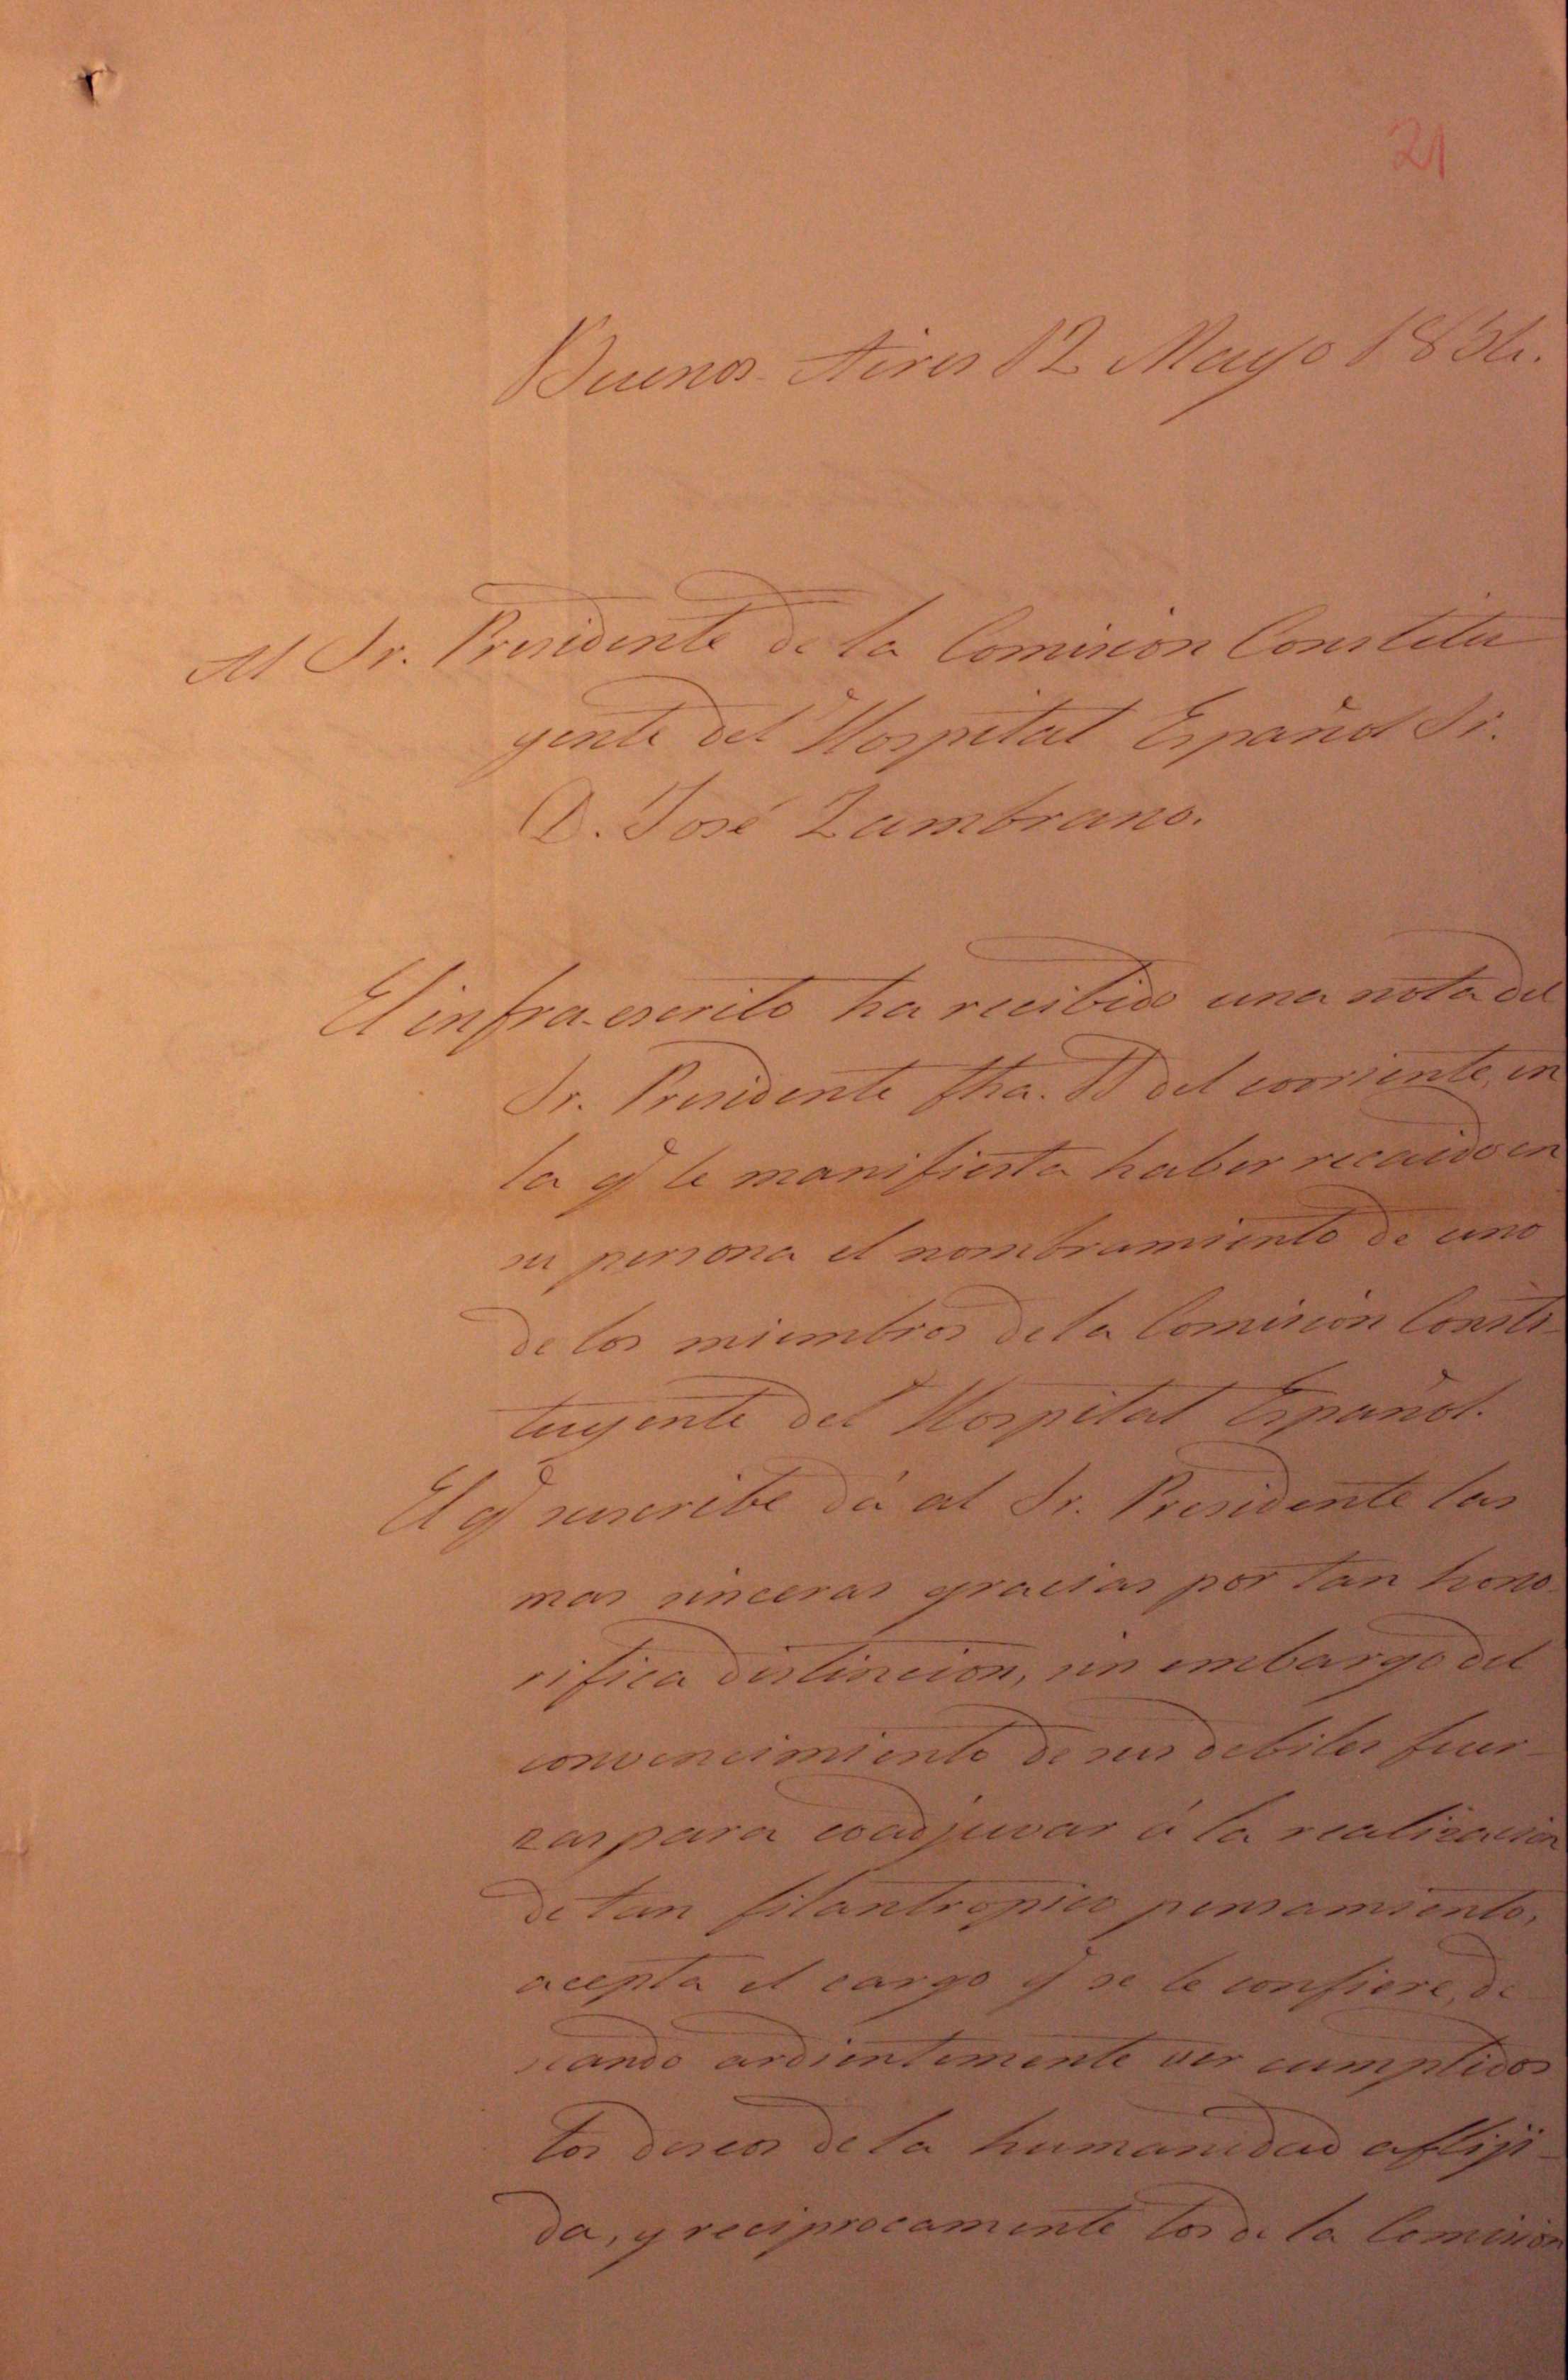 21
Buenos Aires 12 Mayo 185
Al Sr. Presidente de la Comision Constitu
yente del Hospital Español Sr.
D. José Zambrano.
El infra-escrito ha recibido una nota del
Sr. Presidente fha. 11 del corriente, en
la q̃ le manifiesta haber recaido en
su persona el nombramiento de uno
de los miembros de la Comision Consti-
tuyente del Hospital Español.
El q̃ suscribe dá al Sr. Presidente las
mas sinceras gracias por tan hono-
rifica distincion, sin embargo del
convencimiento de sus debiles fuer-
zas para coadjuvar á la realizacion
de tan filantropico pensamiento,
acepta el cargo q̃ se le confiere, de
seando ardientemente ver cumplidos
los deseos de la humanidad afliji-
da, y reciprocamente los de la Comision